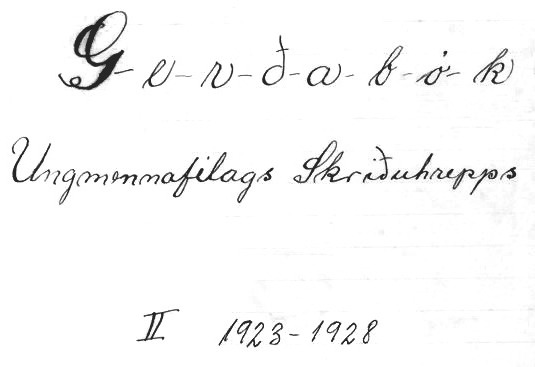 G-e-r-ð-a-b-ó-k
Ungmennafélags Skriðuhrepps
II 1923-1928